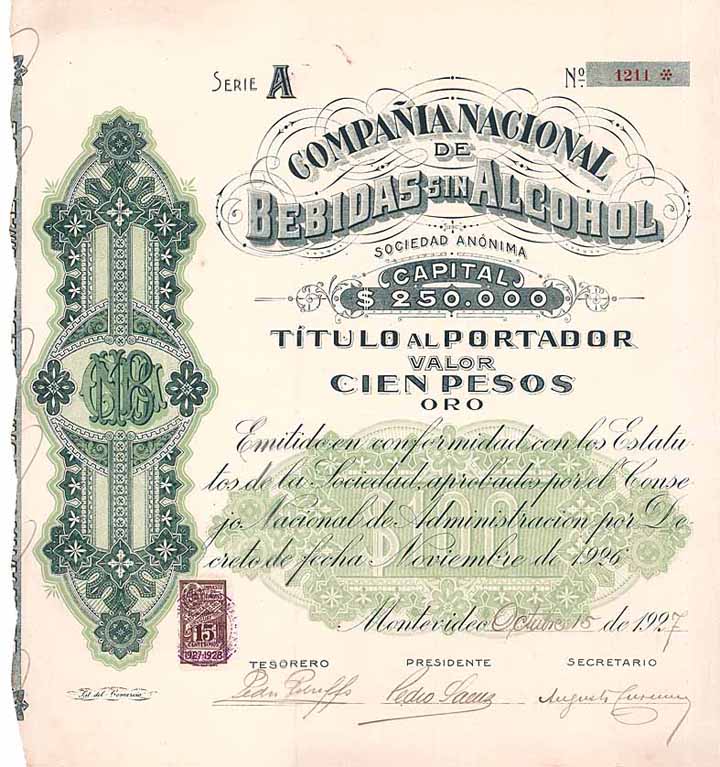 SERIE A
Nº 1211 *
COMPAÑIA NACIONAL
DE
BEBIDAS SIN ALCOHOL
SOCIEDAD ANÓNIMA
CAPITAL
$ 250.000
TÍTULO AL PORTADOR
VALOR
CIEN PESOS
ORO
$100
Emitido en conformidad con los Estatu-
tos de la Sociedad, aprobados por el Conse-
jo Nacional de Administración por De-
creto de fecha Noviembre de 1926
Montevideo Octubre 15 de 1927
15
CENTESIMOS
1927-1928
TESORERO PRESIDENTE SECRETARIO
Pedro Sáenz
Augusto
Lit. del Comercio